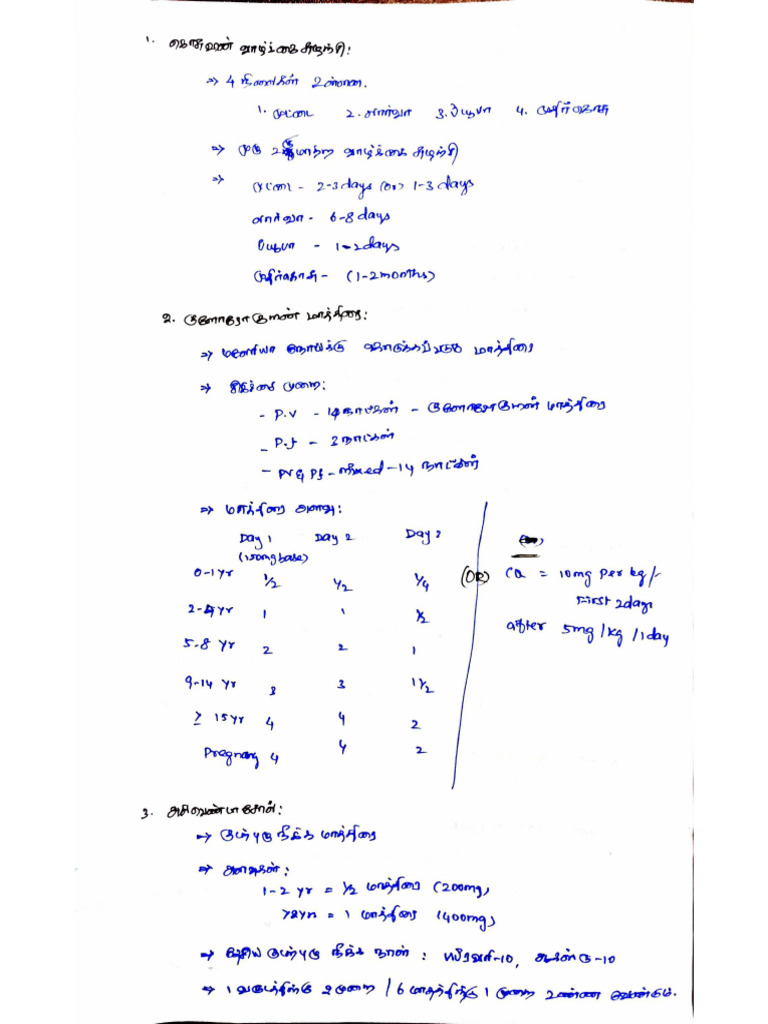 1. கொசுவின் வாழ்க்கை சுழற்சி:
=> 4 நிலைகள் உள்ளன.
1. முட்டை 2. லார்வா 3. பியூபா 4. முதிர்கொசு
=> முழு உருமாற்ற வாழ்க்கை சுழற்சி
=> முட்டை - 2-3 days (or) 1-3 days
லார்வா - 6-8 days
பியூபா - 1-2 days
முதிர்கொசு - (1-2 months)
2. குளோரோகுயின் மாத்திரை:
=> மலேரியா நோய்க்கு கொடுக்கப்படும் மாத்திரை
=> சிகிச்சை முறை:
- P.V - 14 நாட்கள் - குளோரோகுயின் மாத்திரை
- P.f - 3 நாட்கள்
- PV & Pf - mixed - 14 நாட்கள்
=> மாத்திரை அளவு:
Day 1 Day 2 Day 3
(150mg base)
0-1yr 1/2 1/2 1/4
2-4yr 1 1 1/2
5-8 yr 2 2 1
9-14 yr 3 3 1 1/2
≥ 15yr 4 4 2
Pregnancy 4 4 2
(OR) CQ = 10mg per kg/-
First 2days
after 5mg/kg/1day
3. அல்பெண்டாசோல்:
=> குடற்புழு நீக்க மாத்திரை
=> அளவுகள்:
1-2 yr = 1/2 மாத்திரை (200mg)
>2yr = 1 மாத்திரை (400mg)
=> தேசிய குடற்புழு நீக்க நாள்: பிப்ரவரி-10, ஆகஸ்டு-10
=> 1 வருடத்திற்கு 2 முறை / 6 மாதத்திற்கு 1 முறை உண்ண வேண்டும்.